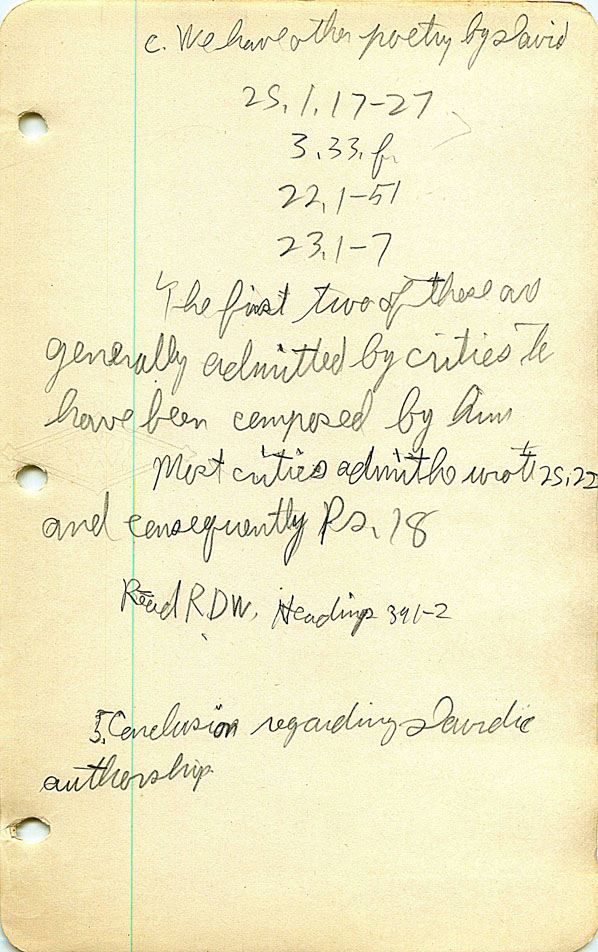 c. We have other poetry by David
2S. 1. 17-27
3. 33. f.
22. 1-51
23. 1-7
The first two of these are
generally admitted by critics to
have been composed by him
Most critics admit he wrote 2S. 22
and consequently Ps. 18
Read RDW, Headings 391-2
5. Conclusion regarding Davidic
authorship